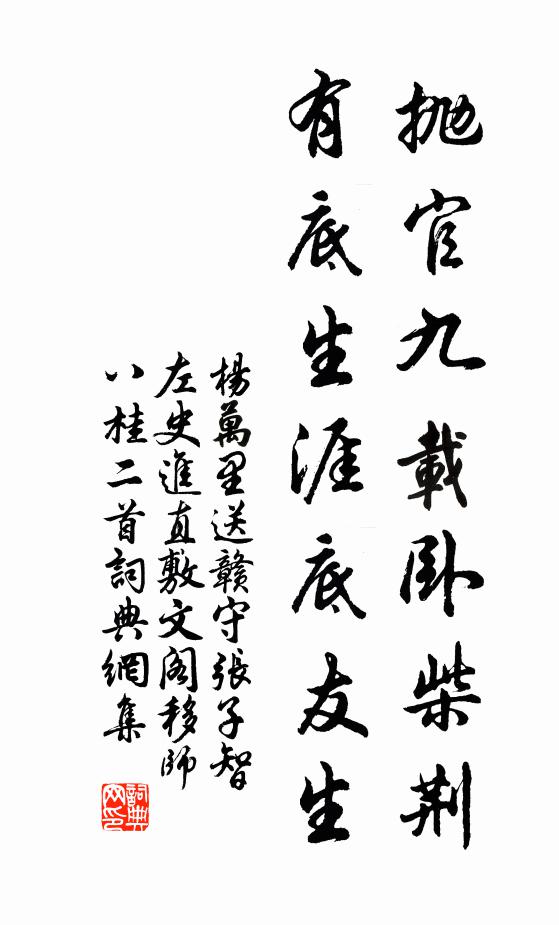 抛官九載卧柴荆
有底生涯底友生
楊萬里送贛守張子智
左史進直敷文閣移師
八桂二首詞典網集
詞典網印